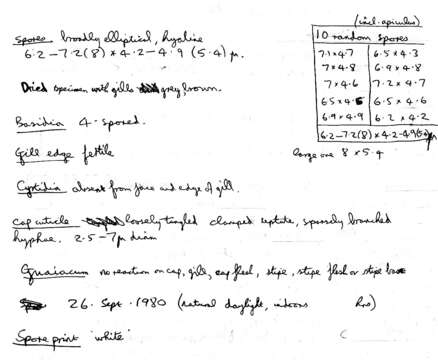 (incl. apiculus)
10 random spores
7.1 × 4.7 6.5 × 4.3
7 × 4.8 6.9 × 4.8
7 × 4.6 7.2 × 4.7
6.5 × 4.5 6.5 × 4.6
6.9 × 4.9 6.2 × 4.2
6.2 – 7.2 (8) × 4.2 – 4.9 (5.4) μ
large one 8 × 5.4
Spores broadly elliptical, hyaline
6.2 – 7.2 (8) × 4.2 – 4.9 (5.4) μ.
Dried specimen with gills grey, brown.
Basidia 4-spored.
Gill edge fertile
Cystidia absent from face and edge of gill.
Cap cuticle loosely tangled clamped septate, sparsely branched
hyphae. 2.5 – 7 μ diam
Guaiacum no reaction on cap, gill, cap flesh, stipe, stipe flesh or stipe base
26. Sept. 1980 (natural daylight, indoors hrs)
Spore print 'white'